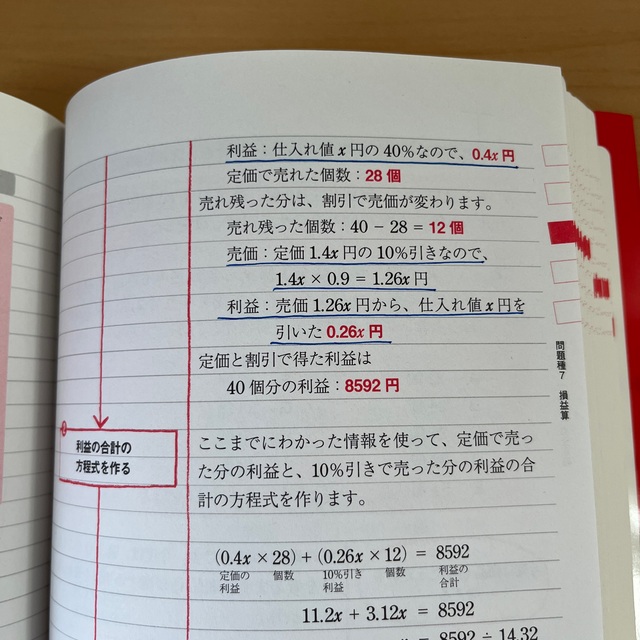 利益：仕入れ値x円の40%なので、0.4x円
定価で売れた個数：28個
売れ残った分は、割引で売価が変わります。
売れ残った個数：40－28＝12個
売価：定価1.4x円の10%引きなので、
1.4x×0.9＝1.26x円
利益：売価1.26x円から、仕入れ値x円を
引いた0.26x円
定価と割引で得た利益は
40個分の利益：8592円
利益の合計の
方程式を作る
ここまでにわかった情報を使って、定価で売っ
た分の利益と、10%引きで売った分の利益の合
計の方程式を作ります。
(0.4x×28)＋(0.26x×12)＝8592
定価の利益 個数 10%引き利益 個数 利益の合計
11.2x＋3.12x＝8592
8592÷14.32
問題種7 損益算